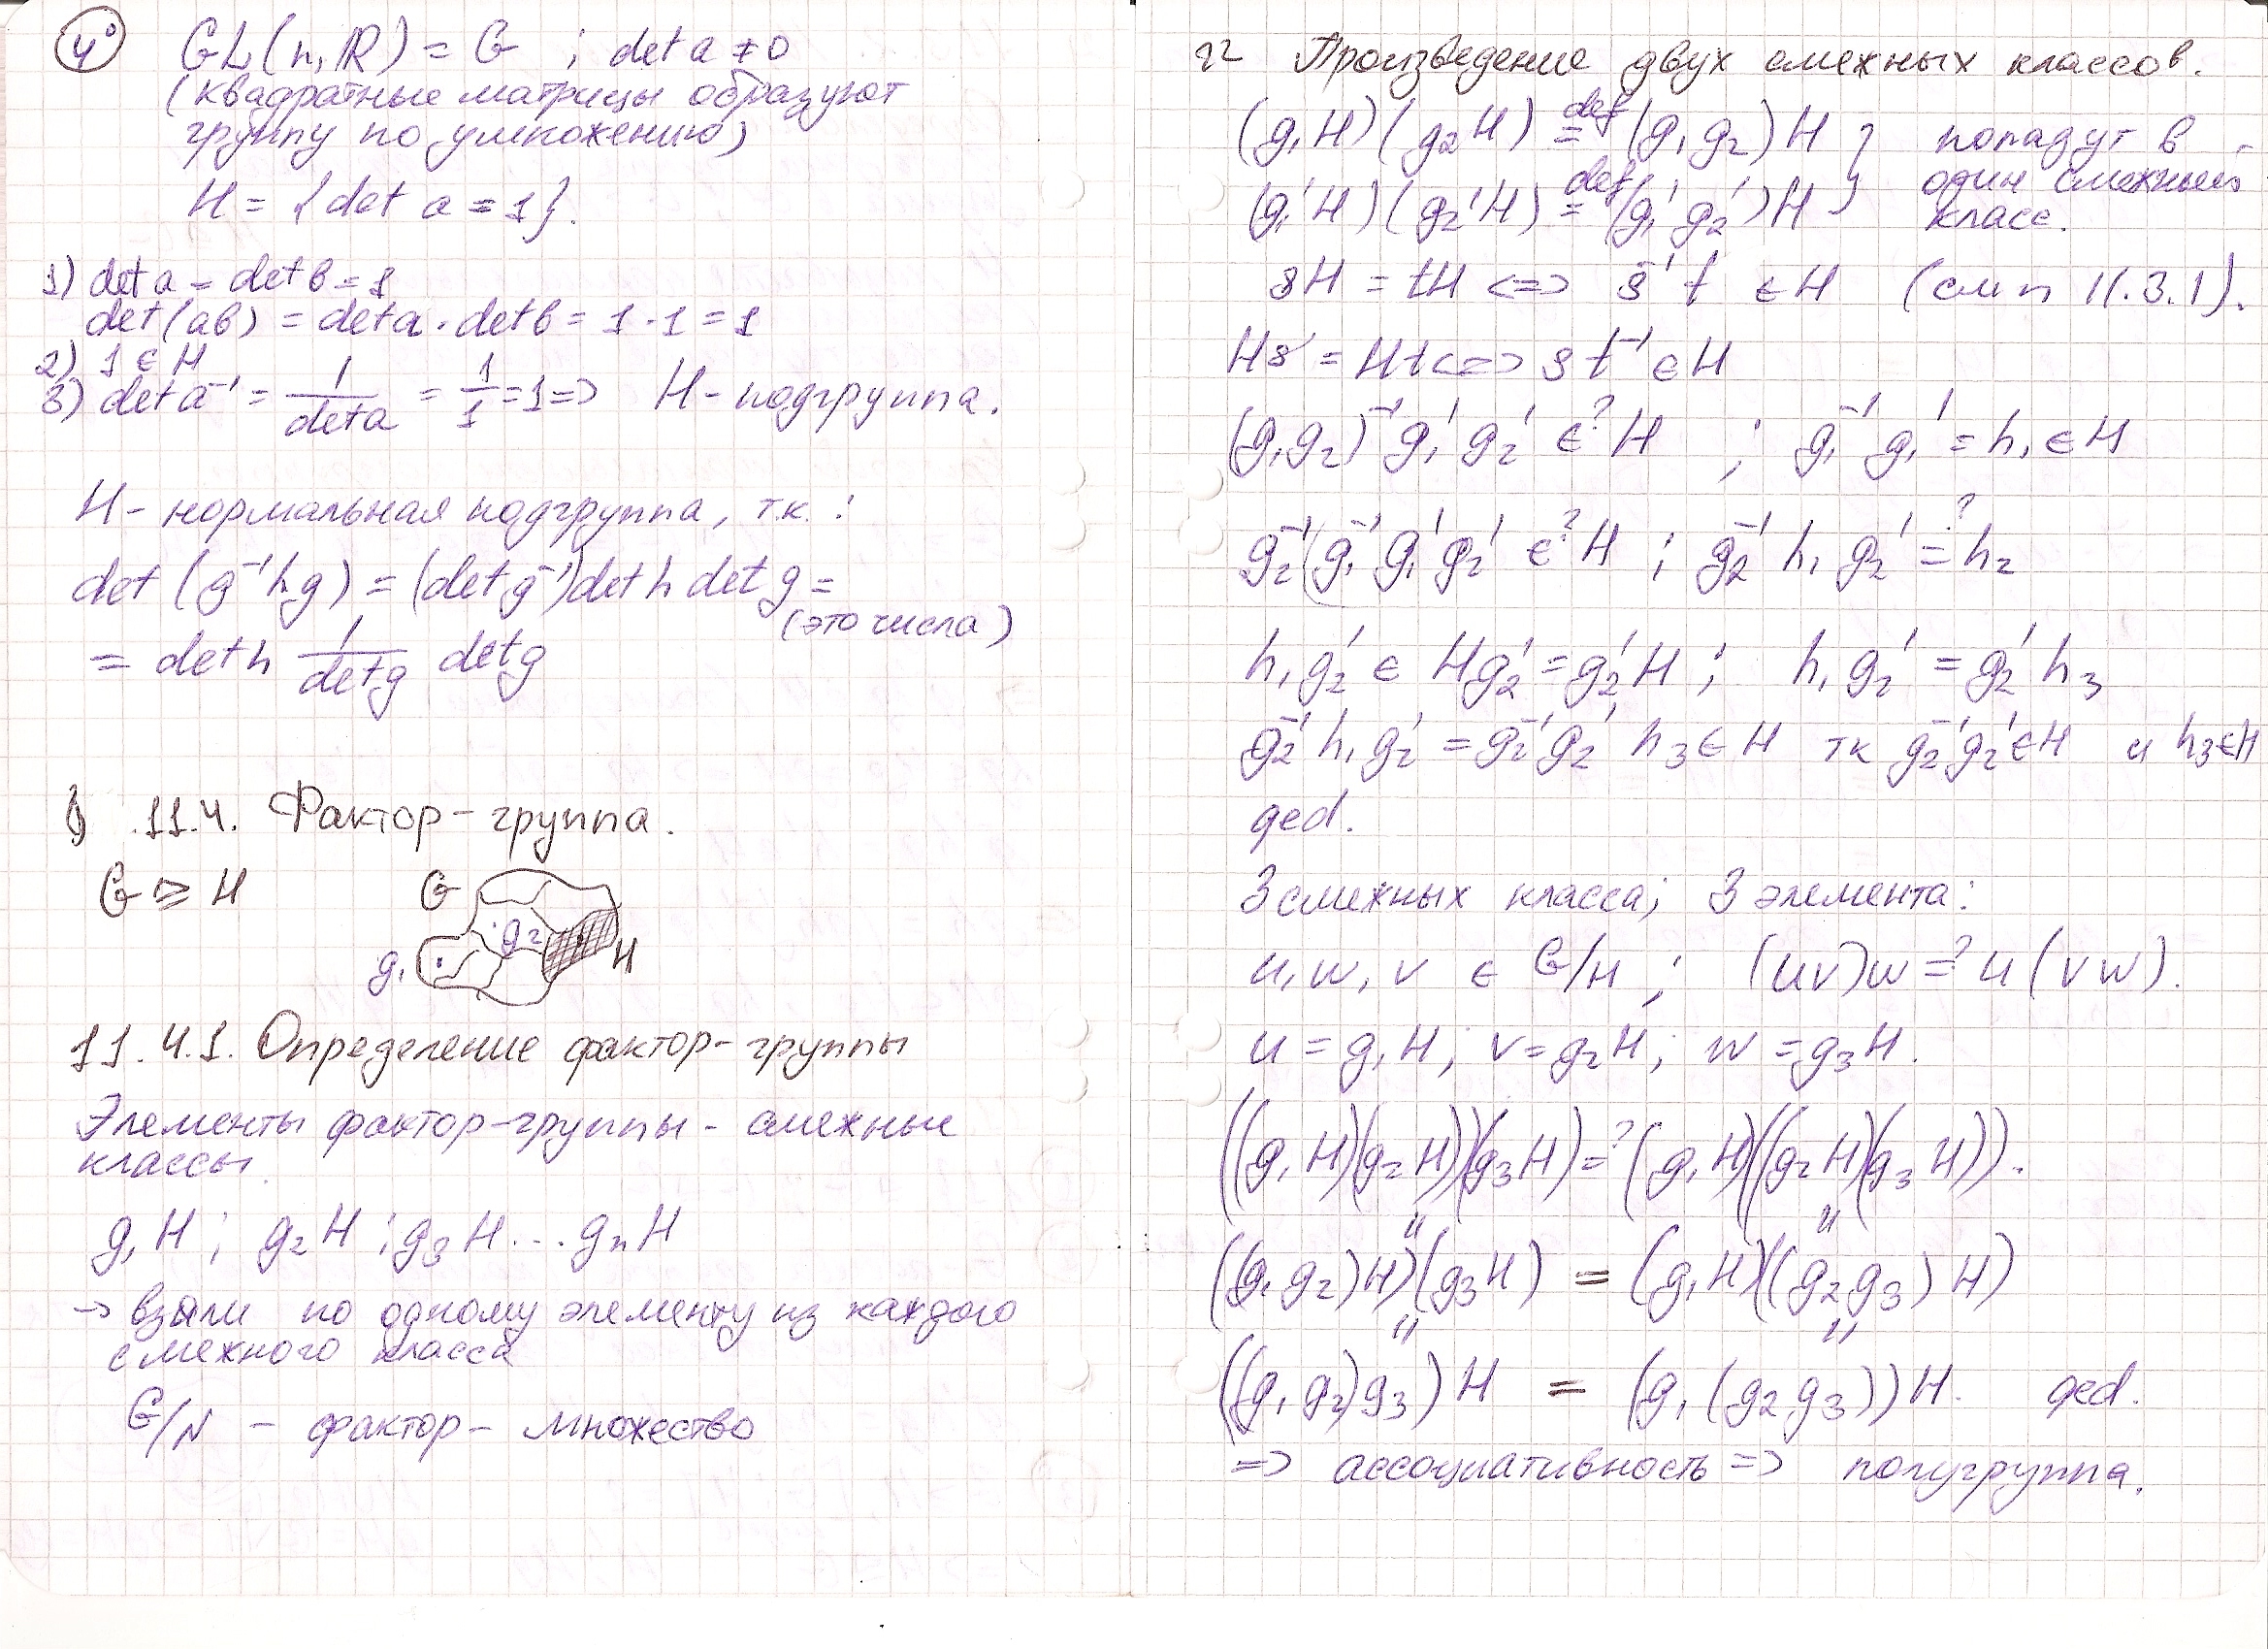 4° GL(n, ℝ) = G ; det a ≠ 0
(квадратные матрицы образуют
группу по умножению)
H = {det a = 1}.
1) det a = det b = 1
det(ab) = det a · det b = 1 · 1 = 1
2) 1 ∈ H
3) det a⁻¹ = 1/det a = 1/1 = 1 => H - подгруппа.
H - нормальная подгруппа, т.к.:
det (g⁻¹hg) = (det g⁻¹) det h det g =
(это числа)
= det h 1/det g det g
§ .11.4. Фактор-группа.
G ⊵ H
G
g₂
g₁ H
11.4.1. Определение фактор-группы
Элементы фактор-группы - смежные
классы.
g₁H ; g₂H ; g₃H ... gₙH
-> взяли по одному элементу из каждого
смежного класса
G/N - фактор-множество
Произведение двух смежных классов.
(g₁H)(g₂H) def= (g₁g₂)H } попадут в
(g₁'H)(g₂'H) def= (g₁'g₂')H } один смежный
класс.
sH = tH <=> s⁻¹t ∈ H (см п 11.3.1).
Hs = Ht <=> st⁻¹ ∈ H
(g₁g₂)⁻¹g₁'g₂' ∈? H ; g₁⁻¹g₁' = h₁ ∈ H
g₂⁻¹(g₁⁻¹g₁'g₂' ∈? H ; g₂⁻¹h₁g₂' =? h₂
h₁g₂' ∈ Hg₂' = g₂'H ; h₁g₂' = g₂'h₃
g₂⁻¹h₁g₂' = g₂⁻¹g₂'h₃ ∈ H тк g₂⁻¹g₂' ∈ H и h₃ ∈ H
qed.
3 смежных класса; 3 элемента:
u, w, v ∈ G/H ; (uv)w =? u(vw).
u = g₁H ; v = g₂H ; w = g₃H.
((g₁H)(g₂H))(g₃H) =? (g₁H)((g₂H)(g₃H)).
" "
((g₁g₂)H)(g₃H) = (g₁H)((g₂g₃)H)
" "
((g₁g₂)g₃)H = (g₁(g₂g₃))H. qed.
=> ассоциативность => полугруппа.